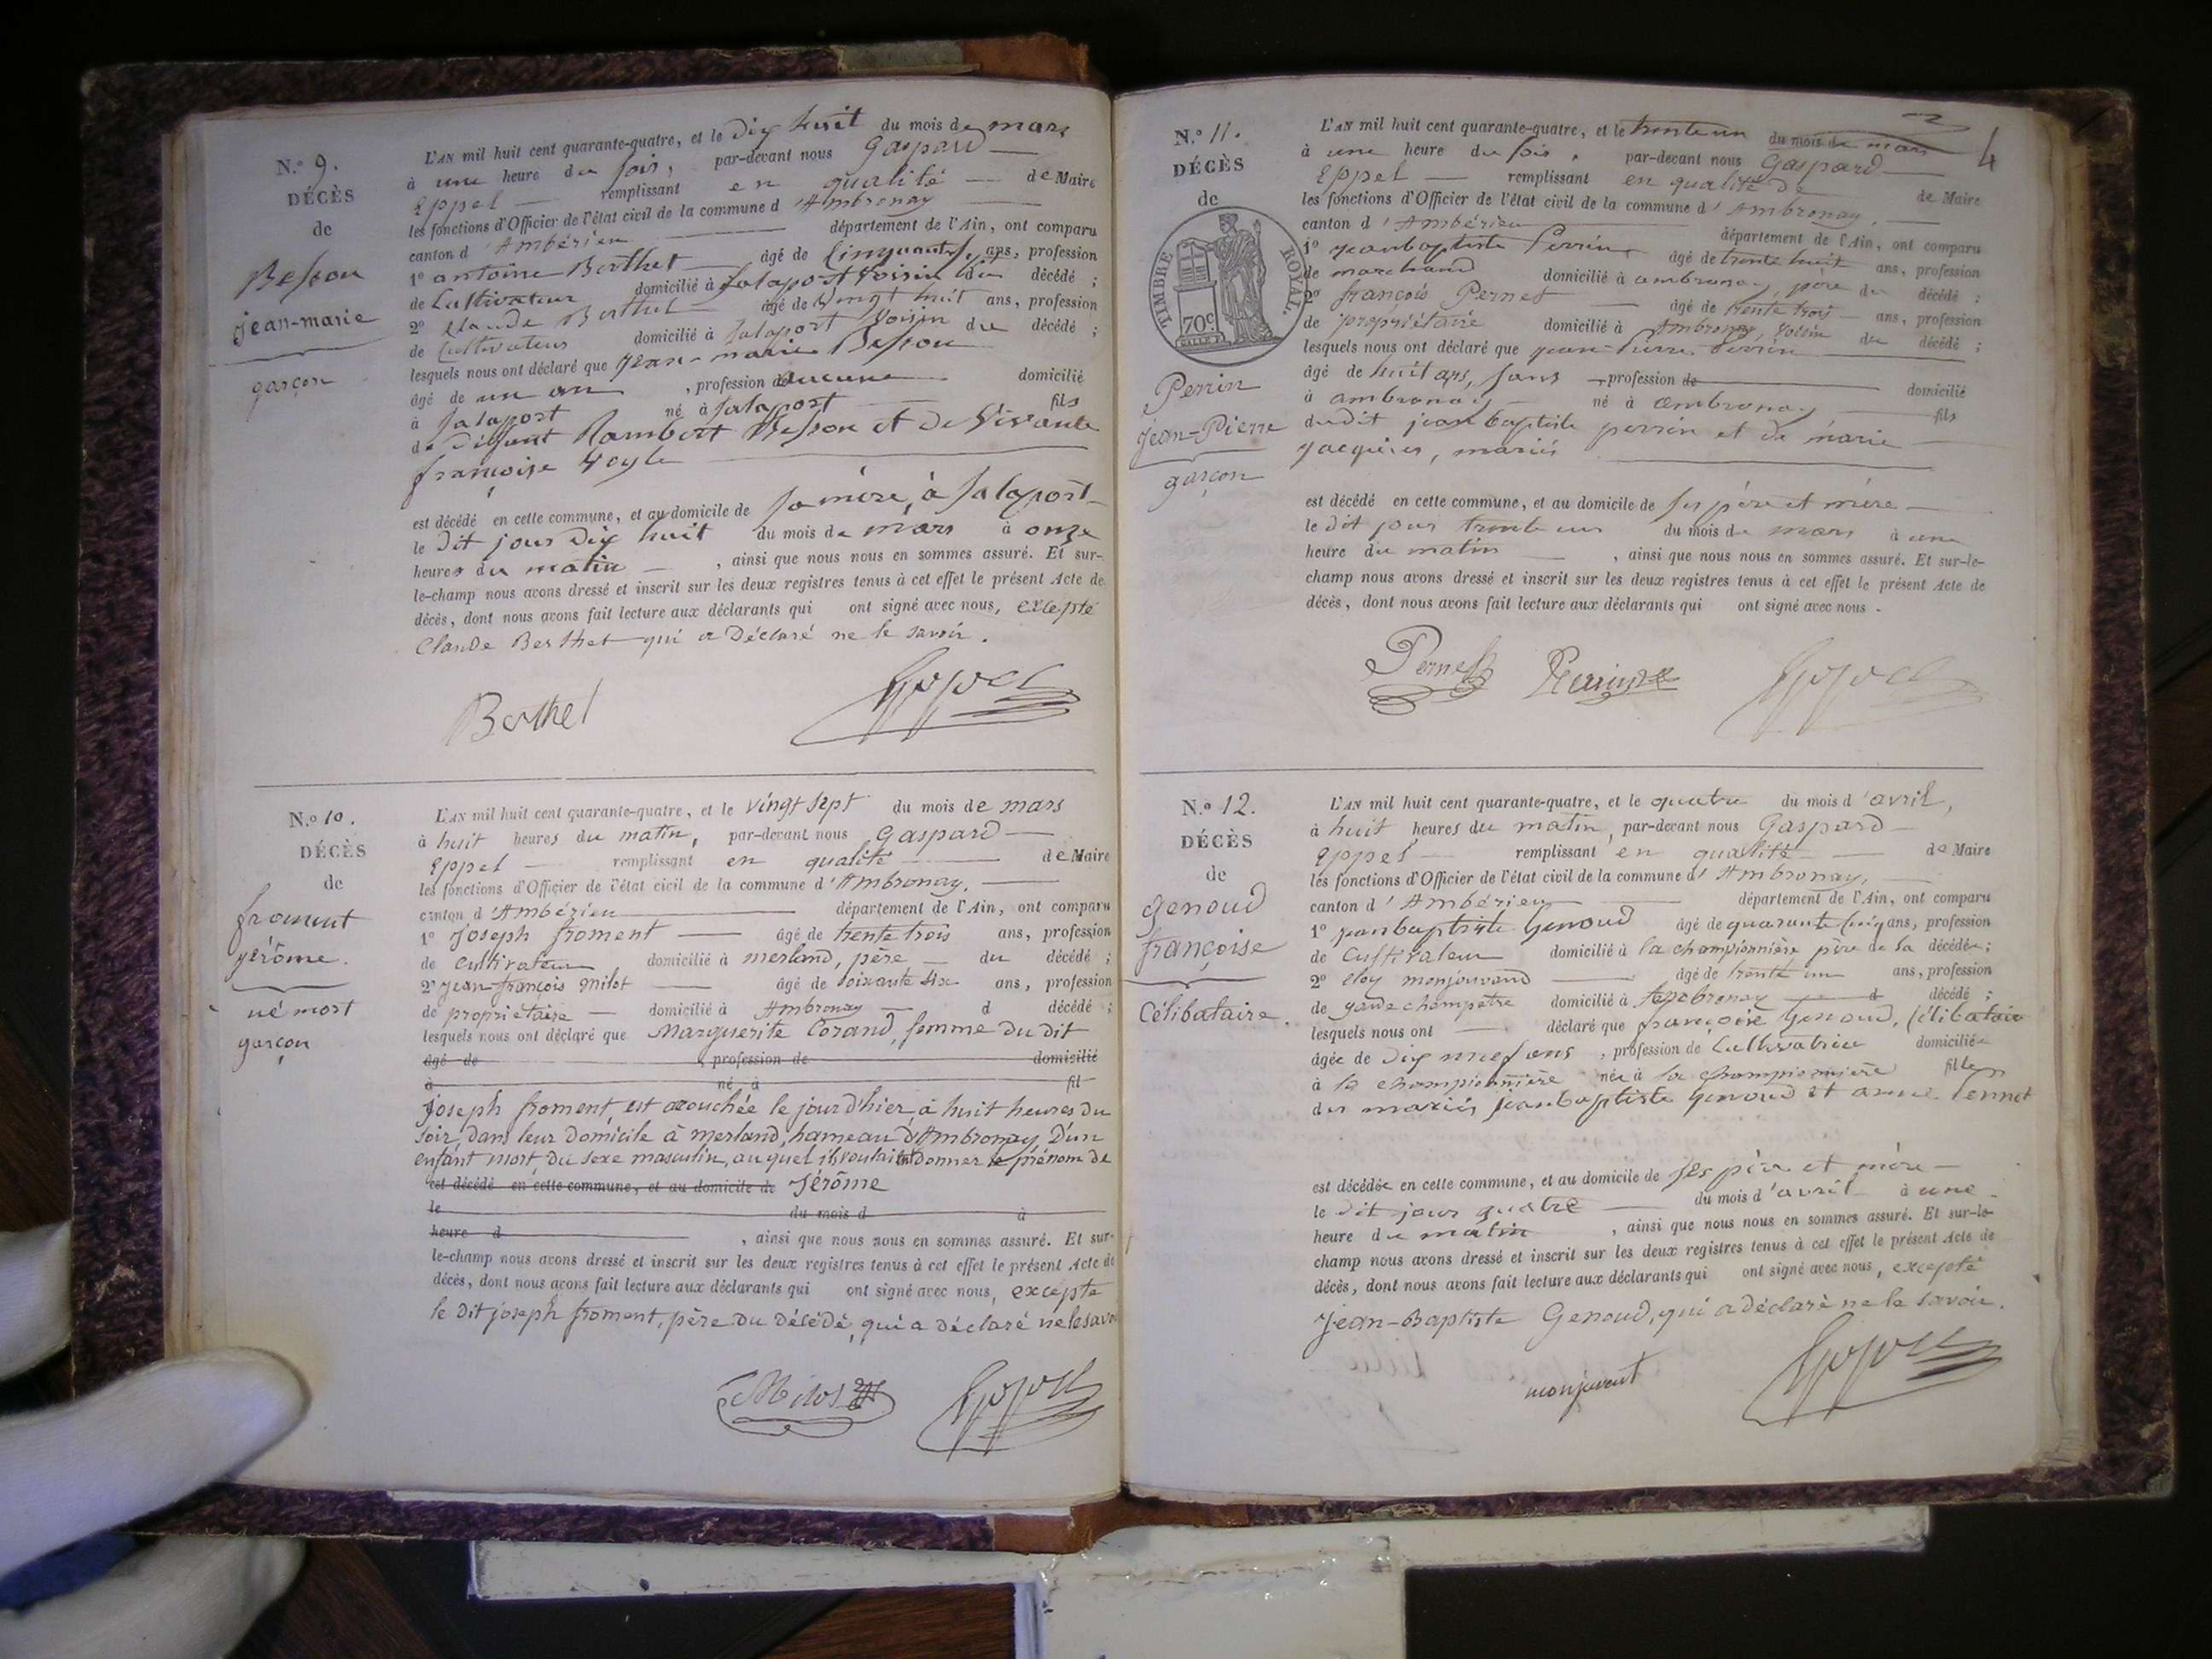 N.º 9.
DÉCÈS
de
Besson
jean-marie
garçon
L'AN mil huit cent quarante-quatre, et le dix huit du mois de mars
à une heure du soir, par-devant nous Gaspard
Eppel remplissant en qualité de Maire
les fonctions d'Officier de l'état civil de la commune d'Ambronay
canton d'Ambérieu département de l'Ain, ont comparu
1º antoine Berthet âgé de cinquante ans, profession
de Cultivateur domicilié à Salaport Voisin du décédé ;
2º Claude Berthet âgé de Vingt huit ans, profession
de Cultivateur domicilié à Salaport Voisin du décédé ;
lesquels nous ont déclaré que jean-marie Besson
âgé de un an , profession d'aucune domicilié
à Salaport né à Salaport fils
de défunt Rambert Besson et de Vivante
françoise
est décédé en cette commune, et au domicile de sa mère, à Salaport
le dit jour dix huit du mois de mars à onze
heures du matin , ainsi que nous nous en sommes assuré. Et sur-
le-champ nous avons dressé et inscrit sur les deux registres tenus à cet effet le présent Acte de
décès, dont nous avons fait lecture aux déclarants qui ont signé avec nous, excepté
Claude Berthet qui a déclaré ne le savoir.
Berthet Eppel
N.º 10.
DÉCÈS
de
froment
jérôme.
né mort
garçon
L'AN mil huit cent quarante-quatre, et le vingt sept du mois de mars
à huit heures du matin, par-devant nous Gaspard
Eppel remplissant en qualité de Maire
les fonctions d'Officier de l'état civil de la commune d'Ambronay.
canton d'Ambérieu département de l'Ain, ont comparu
1º Joseph froment âgé de trente trois ans, profession
de cultivateur domicilié à merland, père du décédé ;
2º jean-françois Milot âgé de soixante six ans, profession
de propriétaire domicilié à Ambronay d décédé ;
lesquels nous ont déclaré que Marguerite Corand, femme du dit
âgé de , profession de domicilié
à né à fil
joseph froment, est acouchée le jour d'hier, à huit heures du
soir, dans leur domicile à merland, hameau d'Ambronay, d'un
enfant mort, du sexe masculin, auquel ils voulaient donner le prénom de
est décédé en cette commune, et au domicile de Jérôme
le du mois d à
heure d , ainsi que nous nous en sommes assuré. Et sur-
le-champ nous avons dressé et inscrit sur les deux registres tenus à cet effet le présent Acte de
décès, dont nous avons fait lecture aux déclarants qui ont signé avec nous, excepté
le dit joseph froment, père du décédé, qui a déclaré ne le savoir
Milot Eppel
4
N.º 11.
DÉCÈS
de
TIMBRE ROYAL.
70c
Perrin
jean-Pierre
garçon
L'AN mil huit cent quarante-quatre, et le trente un du mois de mars
à une heure du soir, par-devant nous Gaspard
Eppel remplissant en qualité de de Maire
les fonctions d'Officier de l'état civil de la commune d'Ambronay.
canton d'Ambérieu département de l'Ain, ont comparu
1º jeanbaptiste Perrin âgé de trente huit ans, profession
de marchand domicilié à ambronay, père du décédé ;
2º françois Pernet âgé de trente trois ans, profession
de propriétaire domicilié à Ambronay, voisin du décédé ;
lesquels nous ont déclaré que jean-Pierre Perrin
âgé de huit ans, sans profession de domicilié
à ambronay né à ambronay fils
dudit jean baptiste perrin et de marie
Jacquier, mariés
est décédé en cette commune, et au domicile de ses père et mère
le dit jour trente un du mois de mars à une
heure du matin , ainsi que nous nous en sommes assuré. Et sur-le-
champ nous avons dressé et inscrit sur les deux registres tenus à cet effet le présent Acte de
décès, dont nous avons fait lecture aux déclarants qui ont signé avec nous.
Pernet Perrin Eppel
N.º 12.
DÉCÈS
de
genoud
françoise
Célibataire.
L'AN mil huit cent quarante-quatre, et le quatre du mois d'avril,
à huit heures du matin, par-devant nous Gaspard
Eppel remplissant en qualité de Maire
les fonctions d'Officier de l'état civil de la commune d'Ambronay.
canton d'Ambérieu département de l'Ain, ont comparu
1º jeanbaptiste Genoud âgé de quarante cinq ans, profession
de Cultivateur domicilié à la championnière père de la décédée ;
2º eloy monjouvand âgé de trente un ans, profession
de garde champetre domicilié à Ambronay d décédé ;
lesquels nous ont déclaré que françoise Genoud, Célibataire
âgée de dix neuf ans , profession de Cultivatrice domiciliée
à la championnière née à la championnière fille
des mariés jeanbaptiste genoud et anne Pernet
est décédée en cette commune, et au domicile de ses père et mère
le dit jour quatre du mois d'avril à une
heure du matin , ainsi que nous nous en sommes assuré. Et sur-le-
champ nous avons dressé et inscrit sur les deux registres tenus à cet effet le présent Acte de
décès, dont nous avons fait lecture aux déclarants qui ont signé avec nous, excepté
jean-Baptiste Genoud, qui a déclaré ne le savoir.
monjouvent Eppel